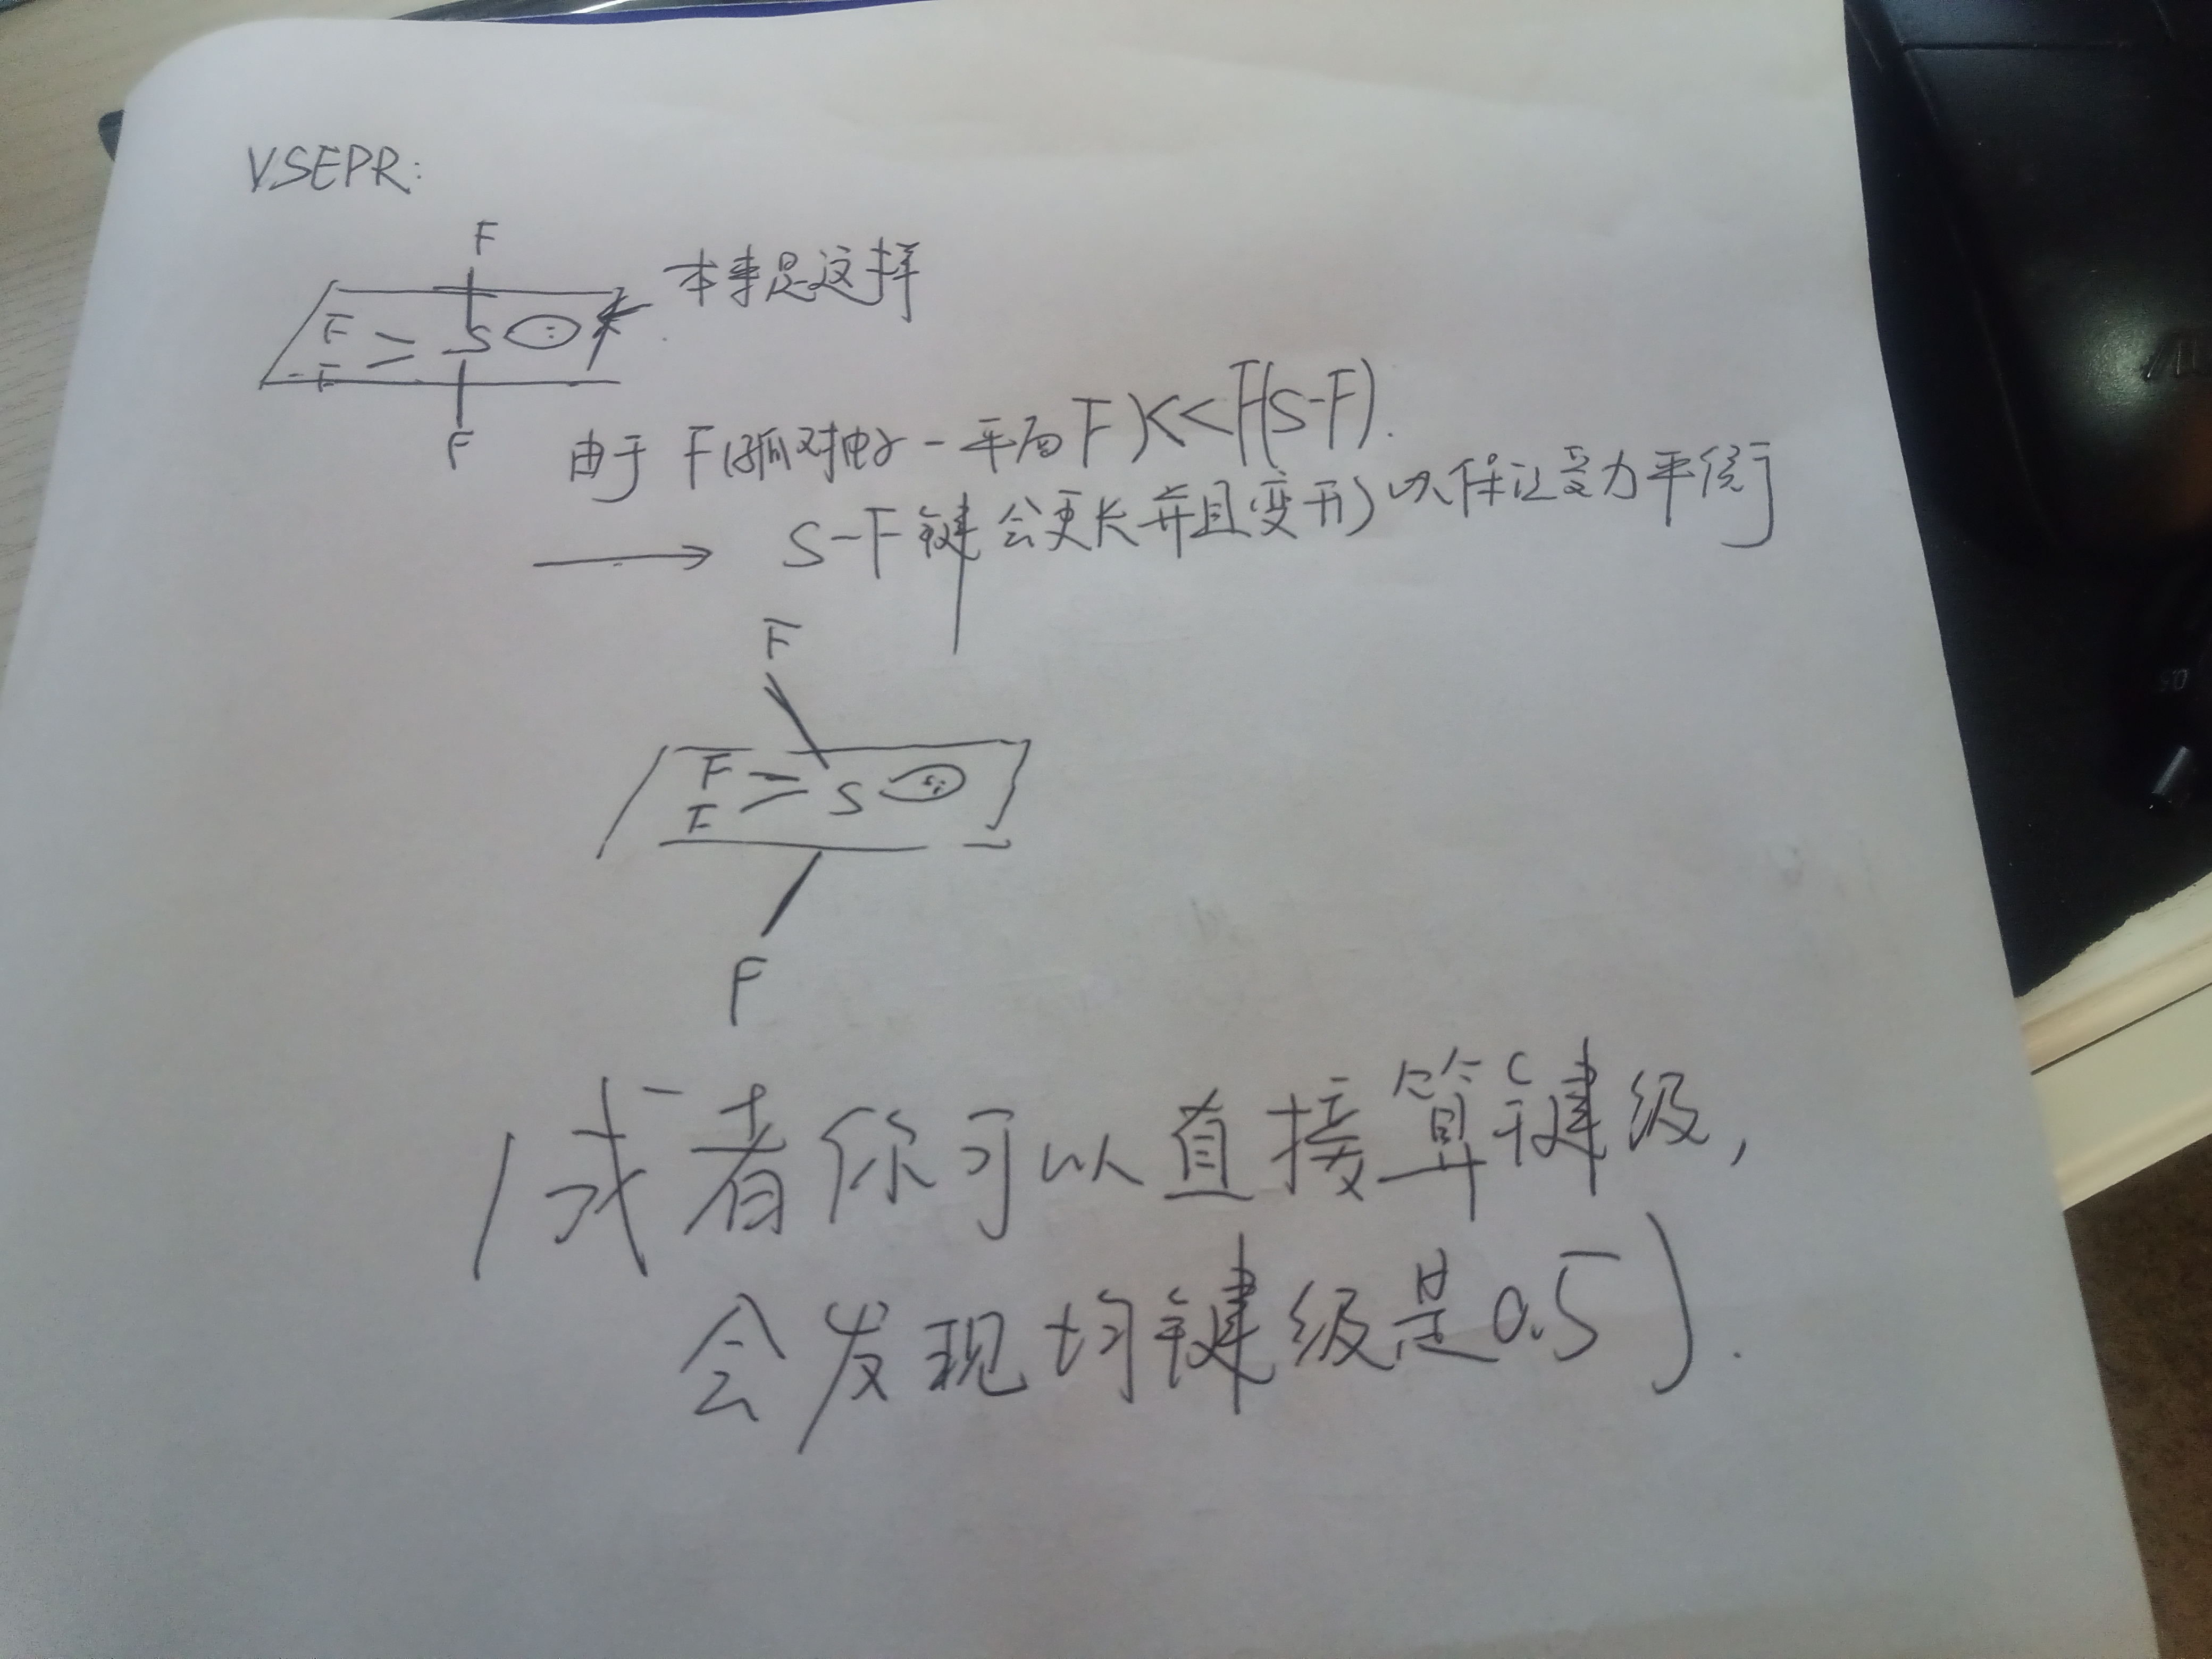 VSEPR:
F
本来是这样
F
S
F
F
由于 F(孤对电子-平面F)<<F(S-F).
→ S-F键会更长并且变形以保证受力平衡
F
F
S
F
F
(或者你可以直接算键级,
会发现均键级是0.5).